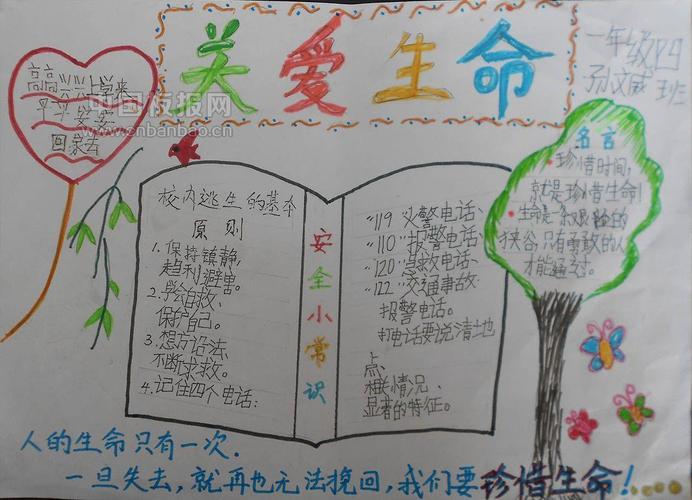 关爱生命
一年级四
孙文威 班
高高兴兴上学来
平平安安
回家去
中国板报网
www.cnbanbao.cn
校内逃生的基本
原则
1.保持镇静,
趋利避害。
2.学会自救,
保护自己。
3.想方设法
不断求救。
4.记住四个电话:
安全小常识
“119”火警电话、
“110”报警电话、
“120”急救电话、
“122”交通事故
报警电话。
打电话要说清土地
点、
相关情况、
显著的特征。
名言
珍惜时间,
就是珍惜生命!
生命是一条艰险的
狭谷,只有勇敢的人
才能通过。
人的生命只有一次.
一旦失去,就再也无法挽回,我们要珍惜生命!……